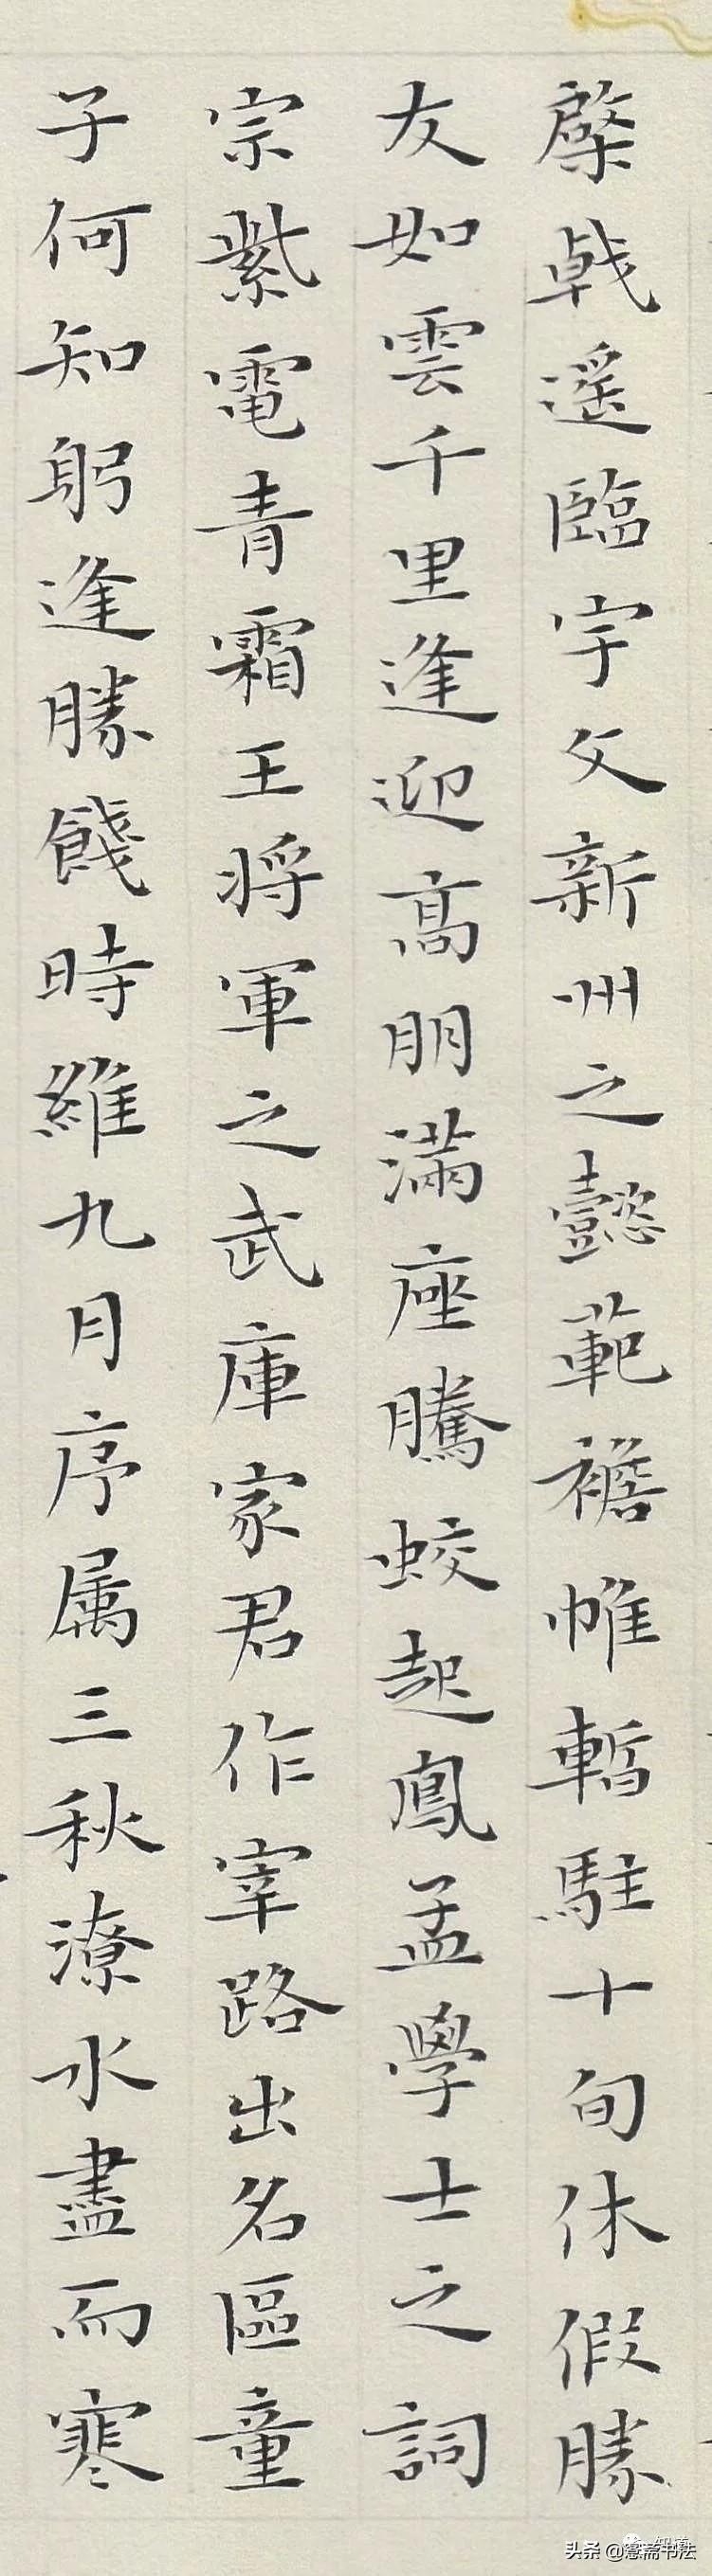 棨戟遥臨宇文新州之懿範襜帷暫駐十旬休假勝
友如雲千里逢迎高朋滿座騰蛟起鳳孟學士之詞
宗紫電青霜王將軍之武庫家君作宰路出名區童
子何知躬逢勝餞時維九月序属三秋潦水盡而寒
头条@憲斋书法